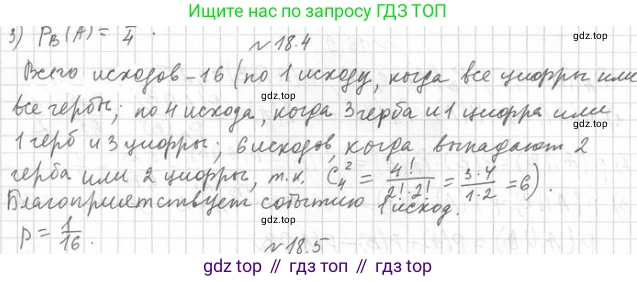 Ищите нас по запросу ГДЗ ТОП
3) P_B(A) = 1/4.
№ 18.4
Всего исходов - 16 (по 1 исходу, когда все цифры или
все гербы; по 4 исхода, когда 3 герба и 1 цифра или
1 герб и 3 цифры; 6 исходов, когда выпадают 2
герба или 2 цифры, т.к. C_4^2 = 4!/(2!·2!) = (3·4)/(1·2) = 6).
Благоприятствует событию 1 исход.
P = 1/16.
№ 18.5
gdz.top
gdz.top
gdz.top
gdz.top
gdz.top